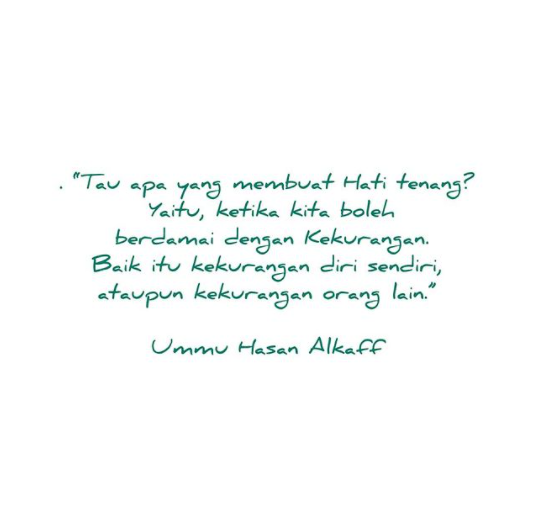 . "Tau apa yang membuat Hati tenang?
Yaitu, ketika kita boleh
berdamai dengan Kekurangan.
Baik itu kekurangan diri sendiri,
ataupun kekurangan orang lain."
Ummu Hasan Alkaff